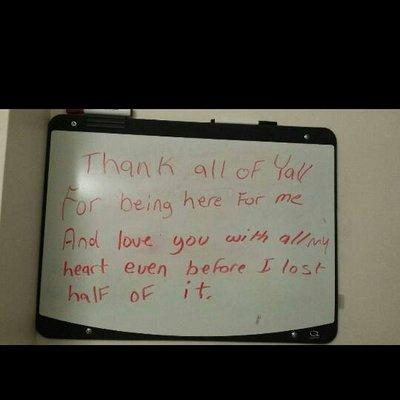 Thank all of Yall
For being here For me
And love you with all my
heart even before I lost
half of it.